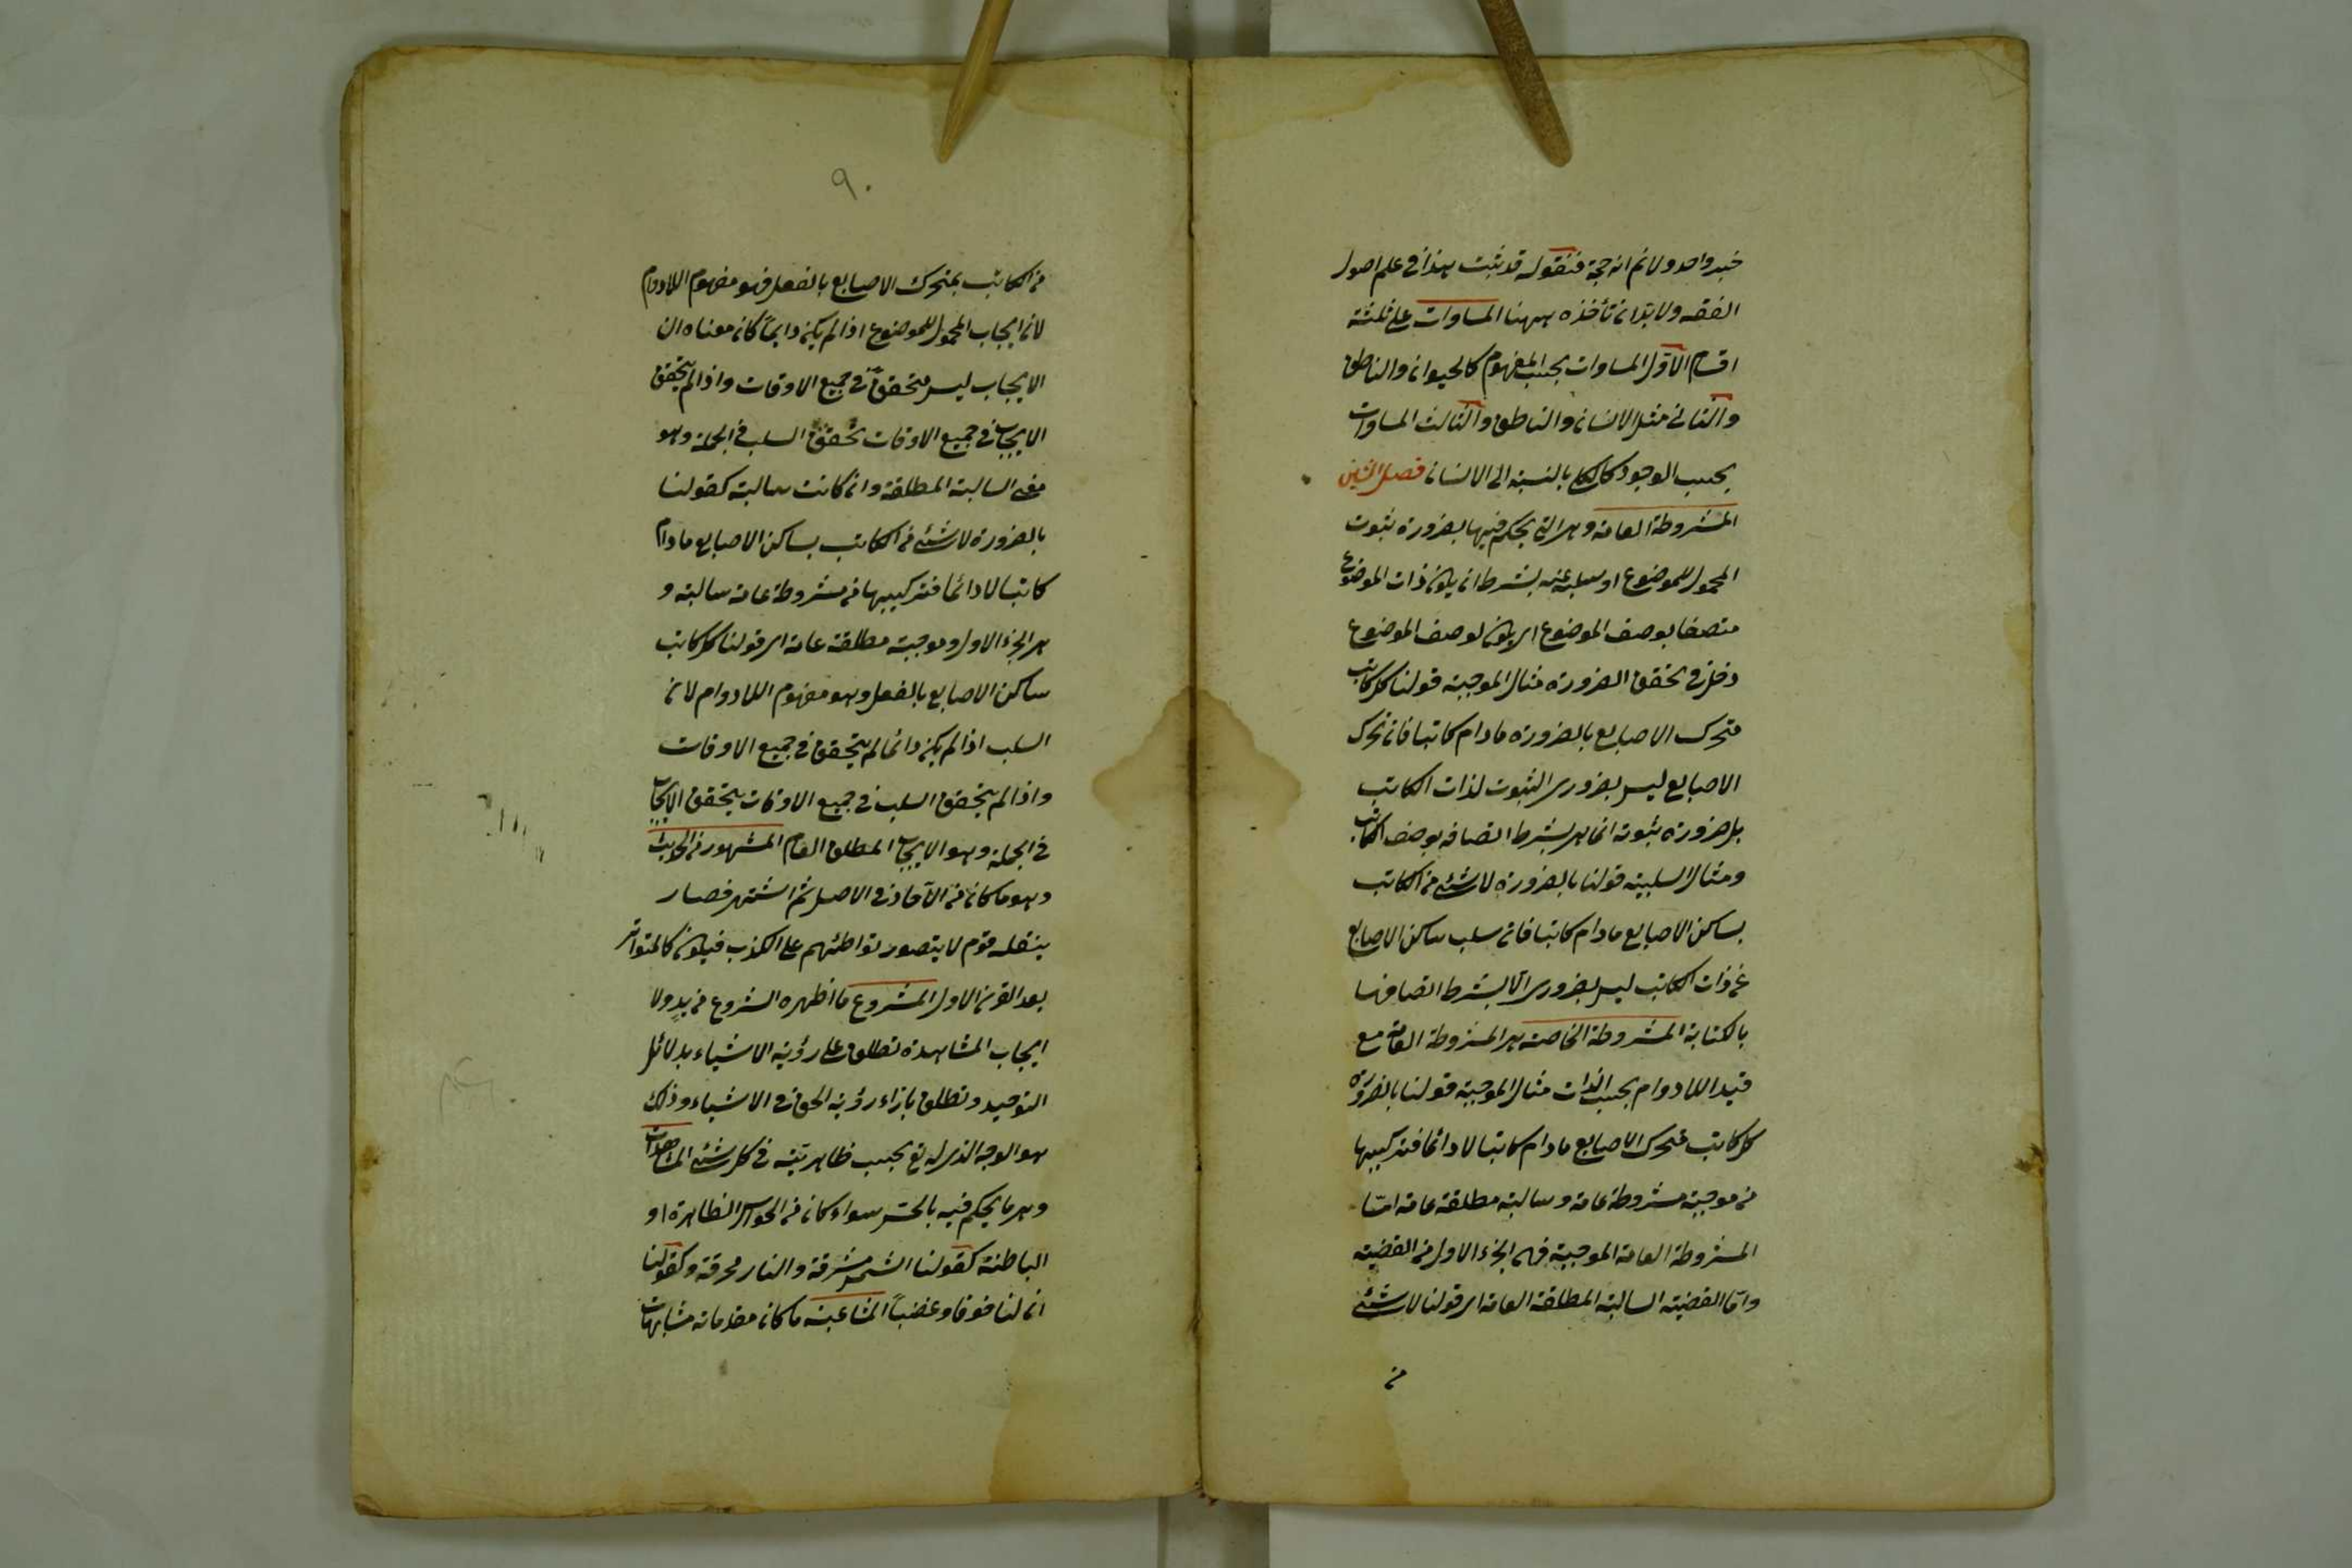 خبر واحد ولا نم انه حجة فنقول قد ثبت هذا فى علم اصول
الفقه ولا بد ان تأخذه ههنا المساوات على ثلثة
اقسام الاول المساوات بحسب المفهوم كالحيوان والناطق
والثانى مثل الانسان والناطق والثالث المساوات
بحسب الوجود كالكل بالنسبة الى الانسان فصل الشين
المشروطة العامة وهى التى يحكم فيها بضرورة ثبوت
المحمول للموضوع او سلبه عنه بشرط ان يكون ذات الموضوع
متصفا بوصف الموضوع اى يكون لوصف الموضوع
دخل فى تحقق الضرورة مثال الموجبة قولنا كل كاتب
متحرك الاصابع بالضرورة مادام كاتبا فان تحرك
الاصابع ليس بضرورى الثبوت لذات الكاتب
بل ضرورة ثبوته انما هى بشرط اتصافه بوصف الكاتب
ومثال السلبية قولنا بالضرورة لا شئ من الكاتب
بساكن الاصابع مادام كاتبا فان سلب ساكن الاصابع
عن ذات الكاتب ليس بضرورى الا بشرط اتصافها
بالكتابة المشروطة الخاصة هى المشروطة العامة مع
قيد اللادوام بحسب الذات مثال الموجبة قولنا بالضرورة
كل كاتب متحرك الاصابع مادام كاتبا لا دائما فتركيبها
من موجبة مشروطة عامة وسالبة مطلقة عامة امّا
المشروطة العامة الموجبة فهى الجزء الاول من القضية
وامّا القضية السالبة المطلقة العامة اى قولنا لا شئ
من
٩٠
من الكاتب بمتحرك الاصابع بالفعل فهو مفهوم اللادوام
لان ايجاب المحمول للموضوع اذا لم يكن دايماً كان معناه ان
الايجاب ليس متحققاً فى جميع الاوقات واذا لم يتحقق
الايجاب فى جميع الاوقات تحقق السلب فى الجملة وهو
معنى السالبة المطلقة وان كانت سالبة كقولنا
بالضرورة لا شئ من الكاتب بساكن الاصابع مادام
كاتبا لا دائما فتركيبها من مشروطة عامة سالبة و
هى الجزء الاول وموجبة مطلقة عامة اى قولنا كل كاتب
ساكن الاصابع بالفعل وهو مفهوم اللادوام لان
السلب اذا لم يكن دائما لم يتحقق فى جميع الاوقات
واذا لم يتحقق السلب فى جميع الاوقات يتحقق الايجاب
فى الجملة وهو الايجاب المطلق العام المشهور من الحديث
وهو ما كان من الآحاد فى الاصل ثم اشتهر فصار
ينقله قوم لا يتصور تواطئهم على الكذب فيكون كالمتواتر
بعد القرن الاول المشروع ما اظهره الشروع من بدو لا
ايجاب المشاهدة تطلق على رؤية الاشياء بدلائل
التوحيد وتطلق بازاء رؤية الحق فى الاشياء وذلك
هو الوجه الذى له تع بحسب ظاهريته فى كل شئ المشاهدات
وهى ما يحكم فيه بالحس سواء كان من الحواس الظاهرة او
الباطنة كقولنا الشمس مشرقة والنار محرقة وكقولنا
ان لنا خوفا وغضباً المشاغبة ما كان مقدماته مشابهات